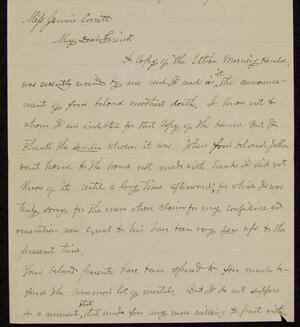 Miss Jennie Everett
My Dear Friend
A Copy of The Utica Morning Herald
was recently received by me and I read in it the announce-
ment of your beloved mothers death, I know not to
whom I am indebted for that Copy of the Herald But I
Thank the sender whoever it was. When your beloved father
went home to the house not made with hands I did not
know of it until a long time afterward, for which I was
truly sorry for the men whose claim for my confidence and
veneration was equal to his have been very few up to the
present time,
Your beloved parents have been spared to you much be-
yond the common lot of mortals But I do not suppose
for a moment, that that made you any more willing to part with